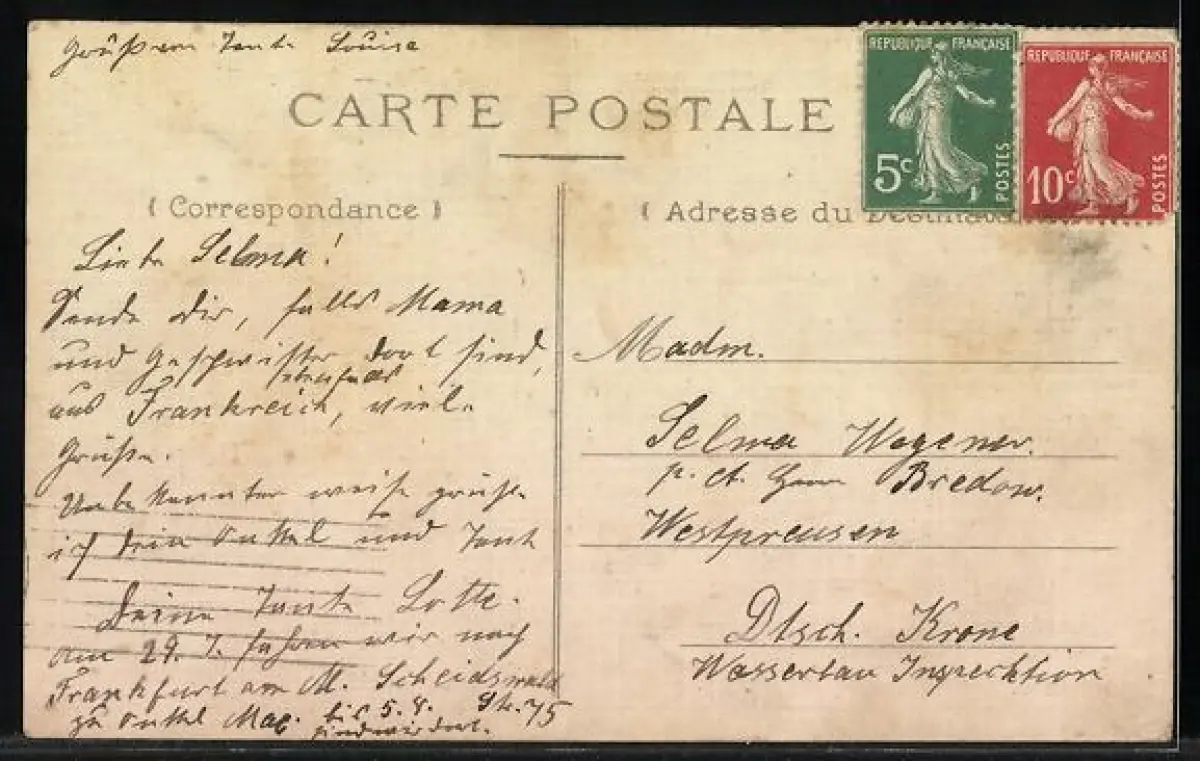 Grüß von Tante Louise
CARTE POSTALE
REPUBLIQUE FRANÇAISE
5c
POSTES
REPUBLIQUE FRANÇAISE
10c
POSTES
( Correspondance )
( Adresse du Destinat
Liebe Selma!
Sende Dir, falls Mama
und Geschwister dort sind,
ebenfalls
aus Frankreich, viele
Grüße.
Unbekannter weise grüße
ich dein Onkel und Tante
Deine Tante Lotte.
am 29. 7. fahren wir nach
Frankfurt am M. Scheidswald
Str. 75
zu Onkel Max. bis 5. 8.
sind wir dort.
Madm.
Selma Wegener.
p. A. Herrn Bredow.
Westpreusen
Dtsch. Krone
Wasserbau Inspecktion